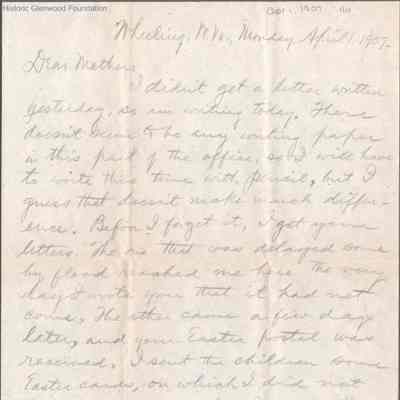 Historic Glenwood Foundation
Wheeling, W.Va., Monday April 1, 1907.
Dear Mother:
I didn't get a letter written
yesterday, so am writing today. There
doesn't seem to be any writing paper
in this part of the office, so I will have
to write this time with pencil, but I
guess that doesn't make much differ-
ence. Before I forget it, I got your
letters. The one that was delayed some
by flood reached me here the very
day I wrote you that it had not
come, The other came a few days
later, and your Easter postal was
received. I sent the children some
Easter cards, on which I did not